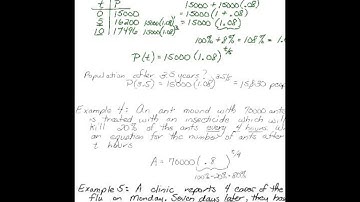 t | P
15000 + 15000(.08)
0 | 15000 = 15000(1 + .08)
5 | 16200 15000(1.08)¹ = 15000(1.08)
10 | 17496 15000(1.08)²
100% + 8% = 108% = 1.
P(t) = 15000(1.08)^(t/5)
Population after 3.5 years?
P(3.5) = 15000(1.08)^(3.5/5) = 15,830 peop
Example 4: An ant mound with 70000 ants
is treated with an insecticide which will
kill 20% of the ants every 4 hours. W
an equation for the number of ants after
t hours
A = 70000(.8)^(t/4)
100%-20%=80%
Example 5: A clinic reports 4 cases of the
flu on Monday. Seven days later, they ha